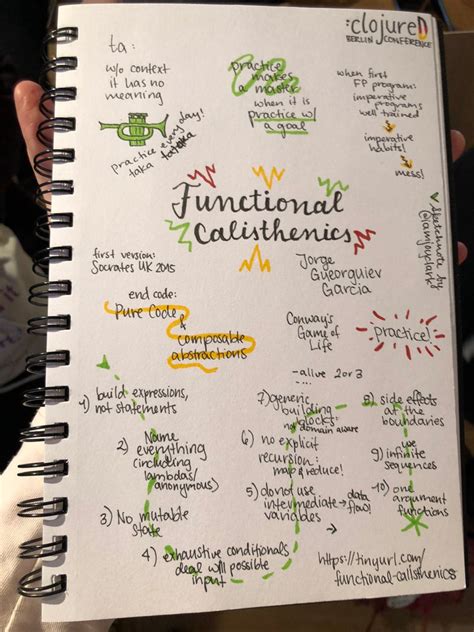 :clojureD
BERLIN CONFERENCE
ta:
w/o context
it has no
meaning
practice every day!
taka taketa
practice
makes
a master
when it is
practice w/
a goal
when first
FP program:
imperative
programs
well trained
imperative
habits!
mess!
Sketchnote by
@amjoyclark
Functional
Calisthenics
first version:
Socrates UK 2015
Jorge
Gueorguiev
Garcia
end code:
Pure Code
&
composable
abstractions
Conway's
Game of
Life
--alive 2 or 3
practice!
1) build expressions,
not statements
2) Name
everything
(including
lambdas/
anonymous)
3) No mutable
state
4) exhaustive conditionals
deal w/ possible
input
5) do not use
intermediate → data
variables flow!
6) no explicit
recursion:
map & reduce!
7) generic
building
blocks:
no domain aware
8) side effects
at the
boundaries
use
9) infinite
sequences
10) one
argument
functions
https://tinyurl.com/
functional-calisthenics